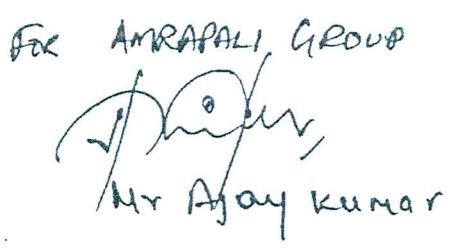 For AMRAPALI GROUP
Mr Ajay Kumar